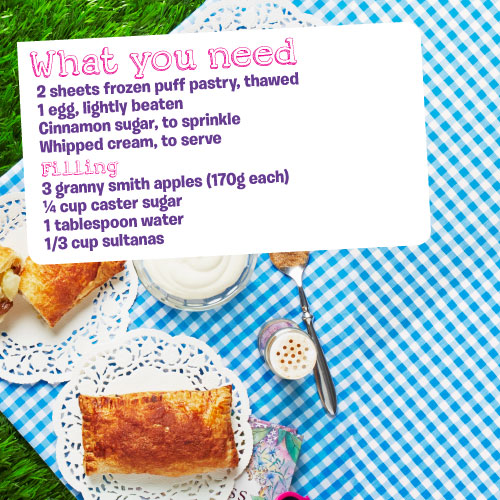 What you need
2 sheets frozen puff pastry, thawed
1 egg, lightly beaten
Cinnamon sugar, to sprinkle
Whipped cream, to serve
Filling
3 granny smith apples (170g each)
¼ cup caster sugar
1 tablespoon water
1/3 cup sultanas